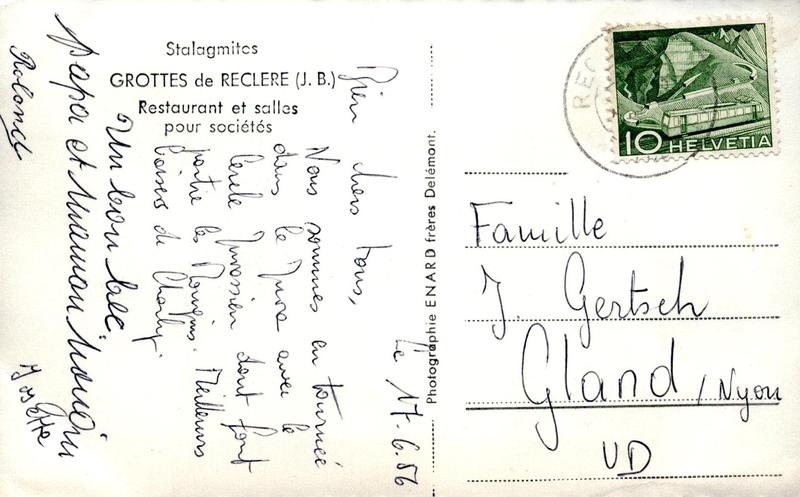 Stalagmites
GROTTES de RECLERE (J. B.)
Restaurant et salles
pour sociétés
Le 17.6.56
Bien chers tous,
Nous sommes en tournée
dans le Jura avec le
Cercle Jurassien dont font
partie les Mougins. Meilleurs
baisers de Charly.
Un bon bec.
papa et Maman
Roland
Josette
Photographie ENARD frères Delémont.
REC
10 HELVETIA
Famille
J. Gertsch
Gland / Nyon
VD